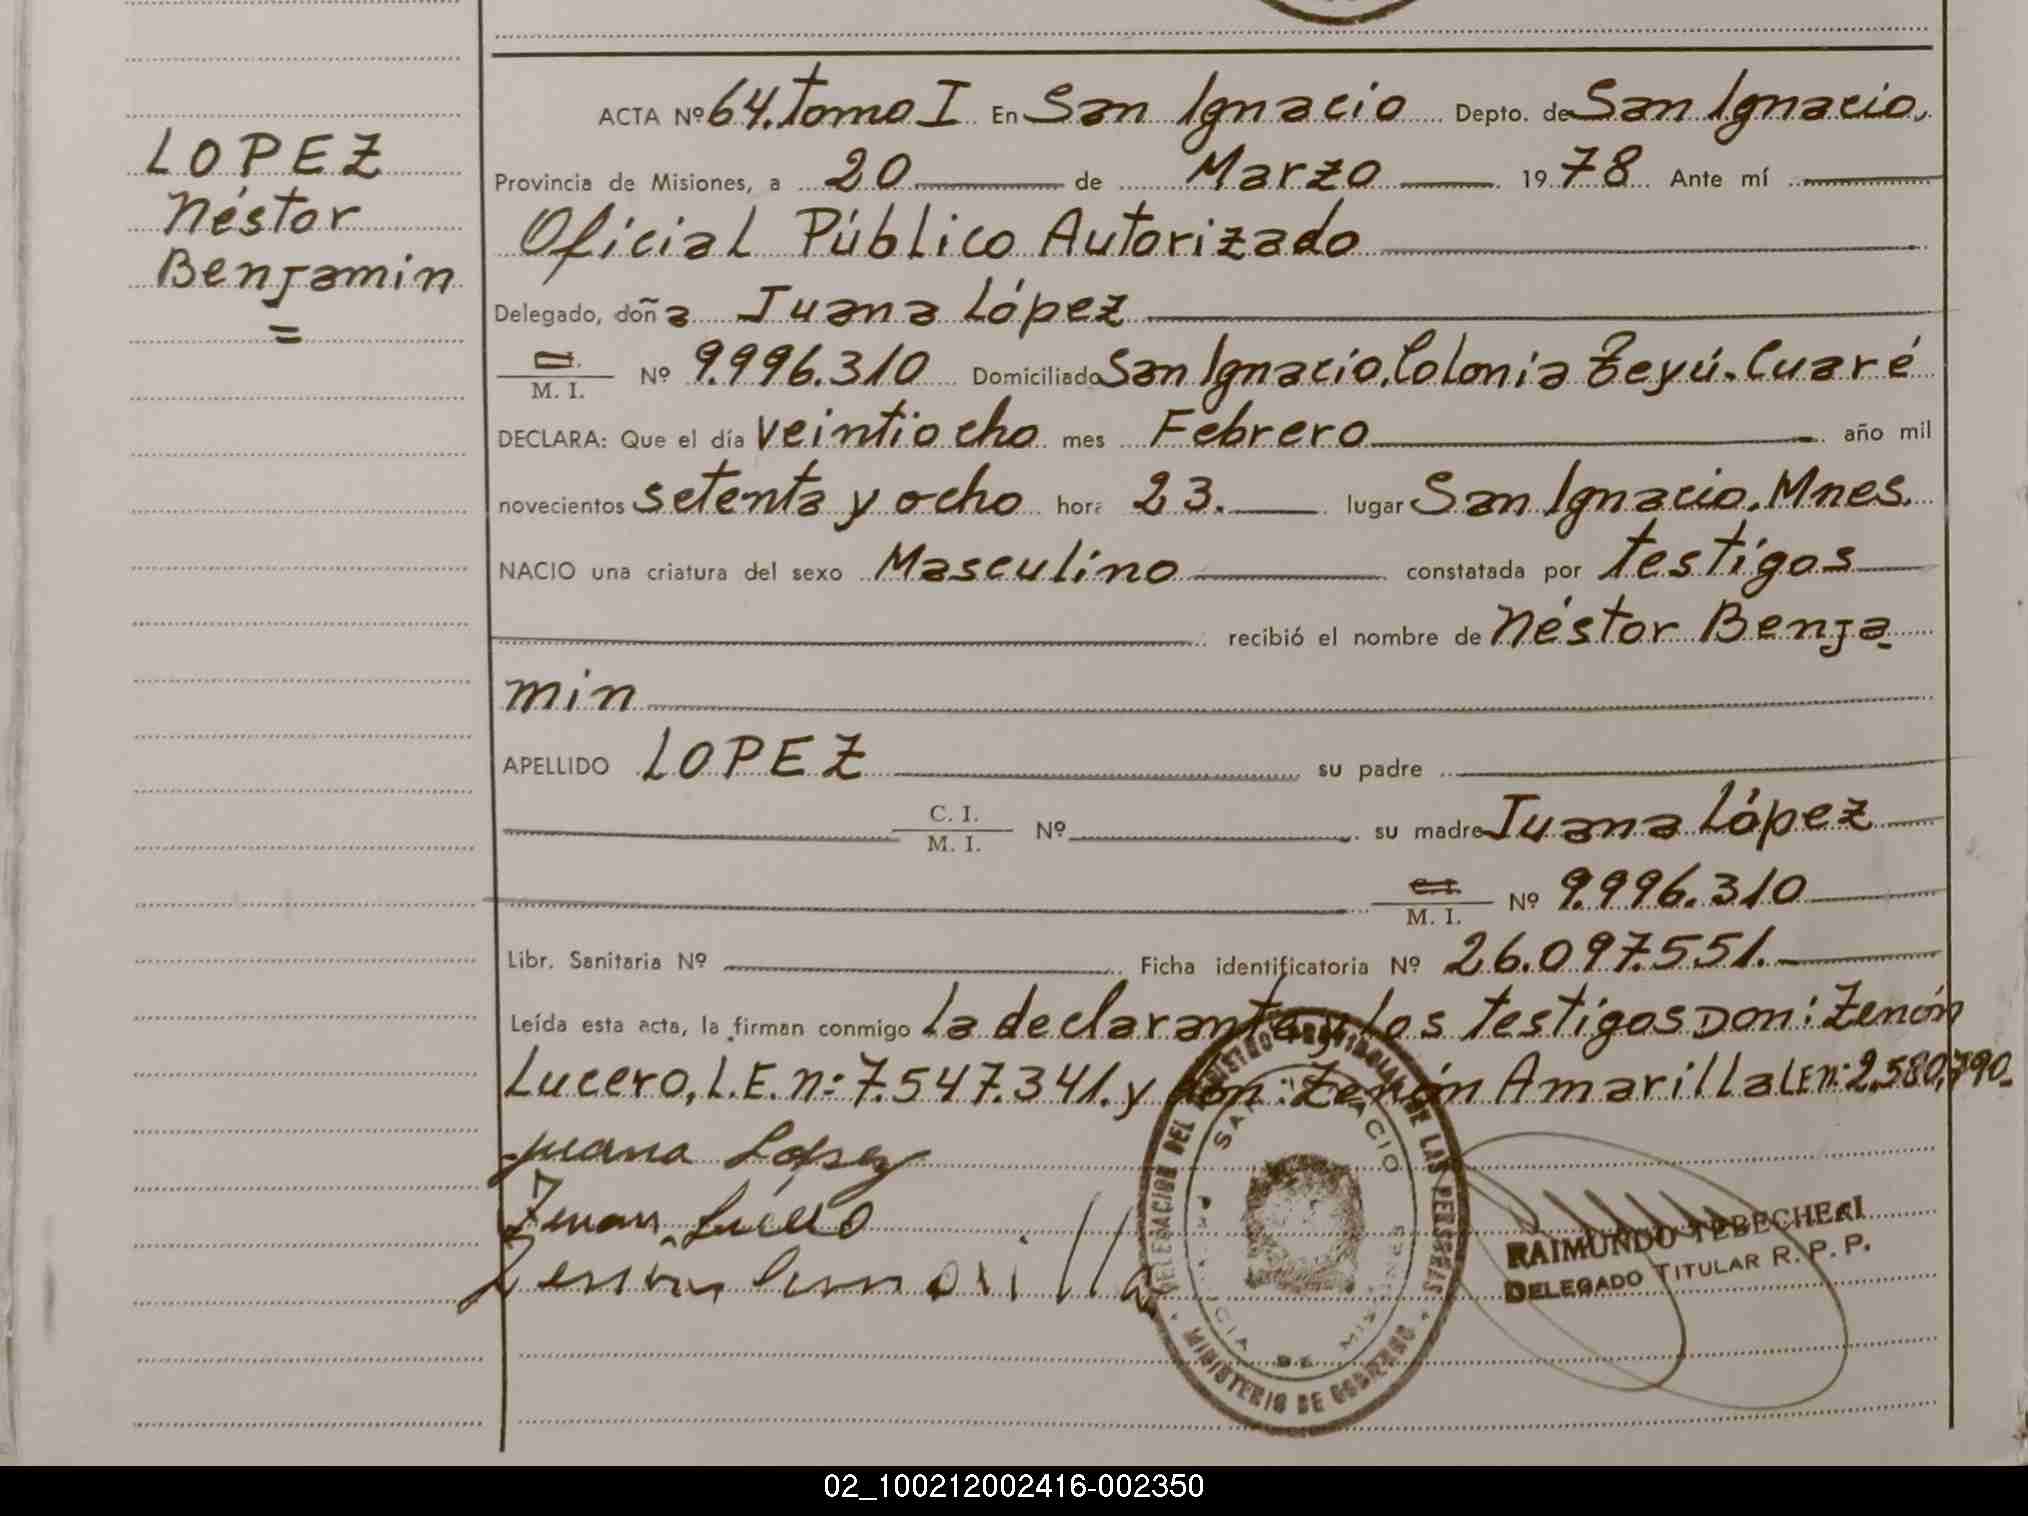 LOPEZ
Néstor
Benjamin
=
ACTA Nº 64. Tomo I En San Ignacio Depto. de San Ignacio.
Provincia de Misiones, a 20 de Marzo 1978 Ante mí
Oficial Público Autorizado
Delegado, doña Juana López
C.I. M. I. Nº 9.996.310 Domiciliado San Ignacio. Colonia Teyú-Cuaré
DECLARA: Que el día veintiocho mes Febrero año mil
novecientos setenta y ocho hora 23. lugar San Ignacio. Mnes.
NACIO una criatura del sexo Masculino constatada por testigos
recibió el nombre de Néstor Benja-
min
APELLIDO LOPEZ su padre
C. I. M. I. Nº su madre Juana López
C.I. M. I. Nº 9.996.310
Libr. Sanitaria Nº Ficha identificatoria Nº 26.097.551.
Leída esta acta, la firman conmigo la declarante y los testigos Don: Zenón
Lucero, L.E. n: 7.547.341. y don: Zenón Amarilla L.E n: 2.580.790.
Juana Lopez
Zenon Lucero
Zenon Amarilla
DELEGACION DEL REGISTRO PROVINCIAL DE LAS PERSONAS
SAN IGNACIO
PROVINCIA DE MISIONES
MINISTERIO DE GOBIERNO
RAIMUNDO TEBECHERI
DELEGADO TITULAR R. P. P.
02_100212002416-002350